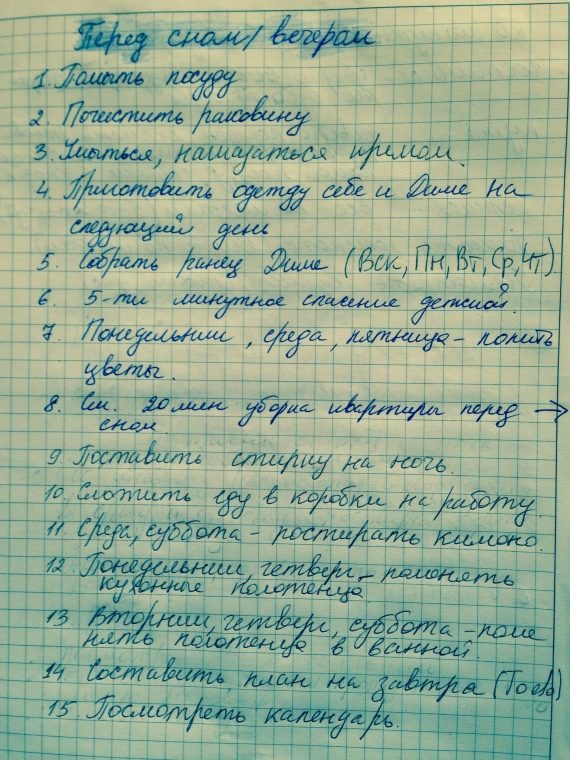 Перед сном/ вечером
1. Помыть посуду
2. Почистить раковину
3. Умыться, намазаться кремом.
4. Приготовить одежду себе и Диме на
следующий день
5. Собрать ранец Диме (Вск, Пн, Вт, Ср, Чт)
6. 5-ти минутное спасение детской.
7. Понедельник, среда, пятница - полить
цветы.
8. См. 20 мин уборка квартиры перед →
сном
9. Поставить стирку на ночь.
10. Сложить еду в коробки на работу.
11. Среда, суббота - постирать кимоно.
12. Понедельник, четверг - поменять
кухонные полотенца
13. Вторник, четверг, суббота - поме
нять полотенца в ванной.
14. Составить план на завтра
15. Посмотреть календарь.